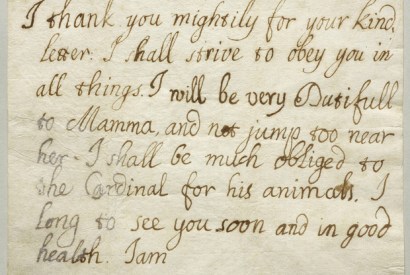 I thank you mightily for your kind
letter. I shall strive to obey you in
all things. I will be very Dutifull
to Mamma, and not jump too near
her. I shall be much obliged to
the Cardinal for his animals. I
long to see you soon and in good
health. Iam